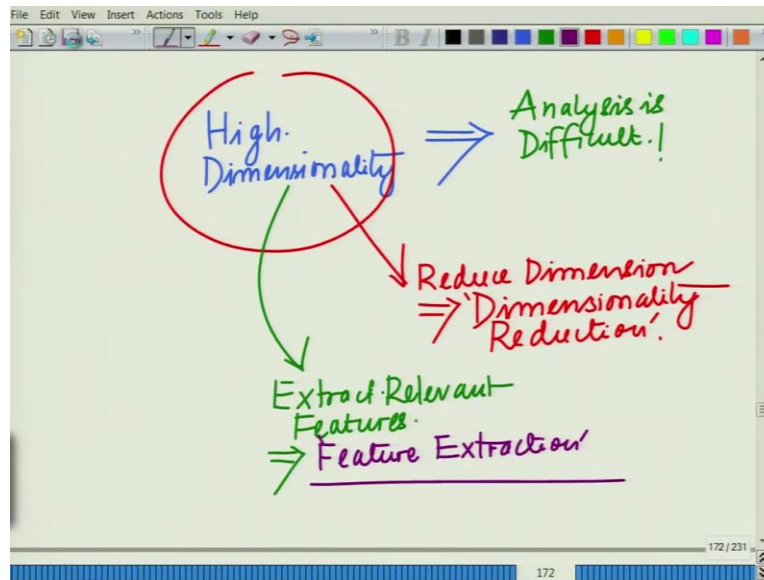 File Edit View Insert Actions Tools Help
High.
Dimensionality
⇒
Analysis is
Difficult.!
Reduce Dimension
⇒ 'Dimensionality
Reduction'.
Extract Relevant
Features.
⇒ 'Feature Extraction'
172/231
172